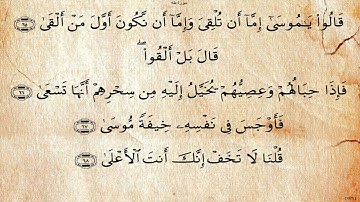 قَالُوا۟ يَـٰمُوسَىٰٓ إِمَّآ أَن تُلْقِىَ وَإِمَّآ أَن نَّكُونَ أَوَّلَ مَنْ أَلْقَىٰ ٦٥
قَالَ بَلْ أَلْقُوا۟ ۖ
فَإِذَا حِبَالُهُمْ وَعِصِيُّهُمْ يُخَيَّلُ إِلَيْهِ مِن سِحْرِهِمْ أَنَّهَا تَسْعَىٰ ٦٦
فَأَوْجَسَ فِى نَفْسِهِۦ خِيفَةً مُّوسَىٰ ٦٧
قُلْنَا لَا تَخَفْ إِنَّكَ أَنتَ ٱلْأَعْلَىٰ ٦٨